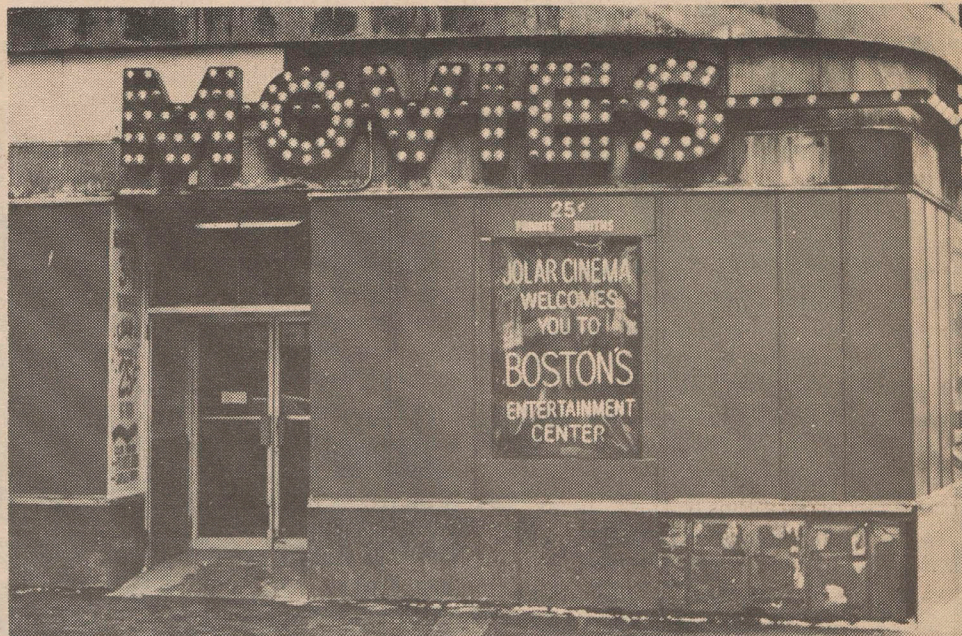 MOVIES
25¢
PRIVATE BOOTHS
JOLAR CINEMA
WELCOMES
YOU TO
BOSTON'S
ENTERTAINMENT
CENTER